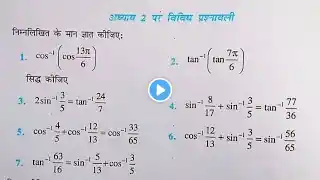 अध्याय 2 पर विविध प्रश्नावली
निम्नलिखित के मान ज्ञात कीजिए:
1. cos⁻¹(cos 13π/6) 2. tan⁻¹(tan 7π/6)
सिद्ध कीजिए
3. 2sin⁻¹ 3/5 = tan⁻¹ 24/7 4. sin⁻¹ 8/17 + sin⁻¹ 3/5 = tan⁻¹ 77/36
5. cos⁻¹ 4/5 + cos⁻¹ 12/13 = cos⁻¹ 33/65 6. cos⁻¹ 12/13 + sin⁻¹ 3/5 = sin⁻¹ 56/65
7. tan⁻¹ 63/16 = sin⁻¹ 5/13 + cos⁻¹ 3/5